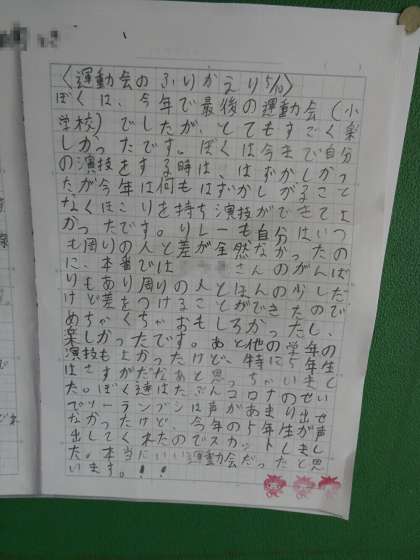 〈運動会のふりかえり5/10〉
ぼくは、今年で最後の運動会(小
学校)でしたが、とてもすごく楽
しかったです。ぼくは今まで自分
の演技をする時は、はずかしかっ
たが今年は何もはずかしがること
なくほこりを持ち演技ができてよ
かったです。リレーも自分はいつ
も周りの人と差が全然なかったの
に、本番では さんのがんば
りもあり周りの人とほんの少しだ
けど差をつけることができたので
めちゃくちゃおもしろかったし、
楽しかったです。あと他の学年の
演技もよかったけど、特に5年生
はさすがだなあと思っちゃいまし
た。ぼく達はたぶんコロナのせい
でソーランブシは声があまり出せ
なかったけど、今年の5年生が声
出してくれたのでスカットしまし
た。本当にいい運動会だったと思
います。!!